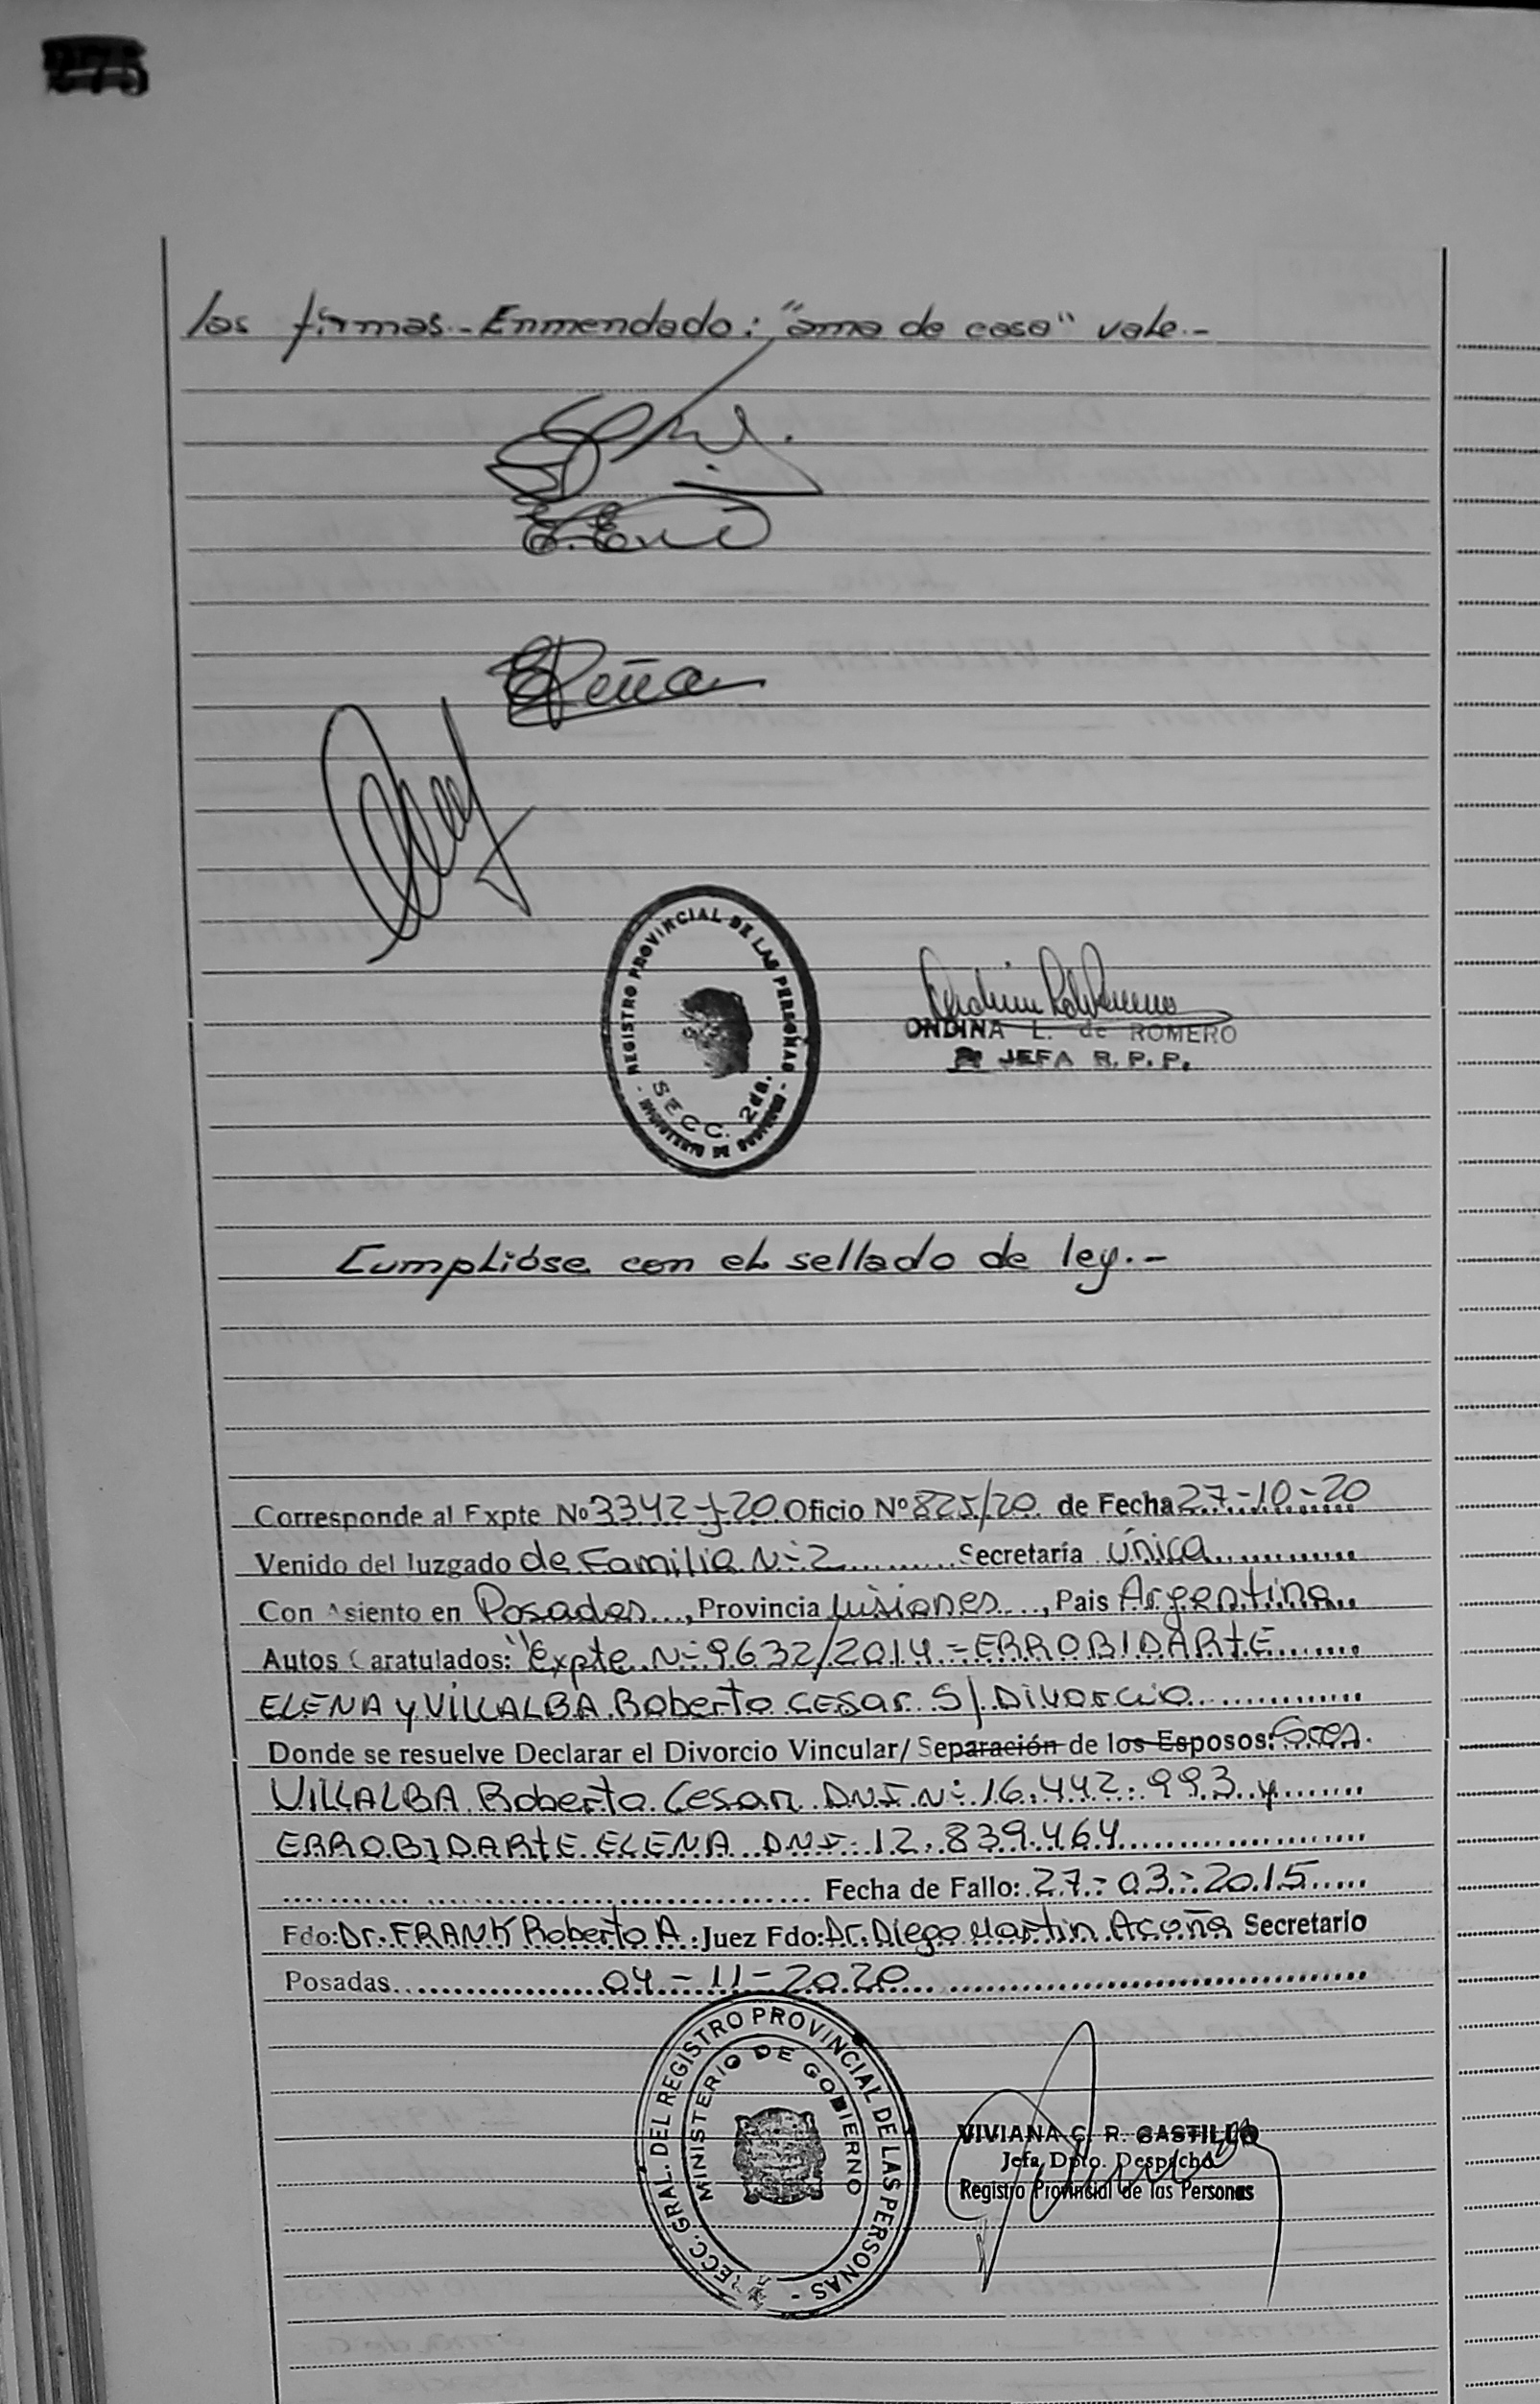 275
las firmas.- Enmendado: "ama de casa" vale.-
Peña
REGISTRO PROVINCIAL DE LAS PERSONAS
SECC. 2da.
- MINISTERIO DE GOBIERNO -
ONDINA L. de ROMERO
JEFA R. P. P.
Cumplióse con el sellado de ley.-
Corresponde al Expte Nº 3342-J-20 Oficio Nº 825/20 de Fecha 27-10-20
Venido del Juzgado de Familia Nº 2 Secretaría Única
Con Asiento en Posadas, Provincia Misiones, Pais Argentina
Autos Caratulados: "Expte Nº 9632/2014 - ERROBIDARTE
ELENA y VILLALBA Roberto Cesar S/ Divorcio
Donde se resuelve Declarar el Divorcio Vincular/ Separación de los Esposos: Sres.
VILLALBA Roberto Cesar DNI Nº 16.442.993 y
ERROBIDARTE ELENA DNI: 12.839.464
Fecha de Fallo: 27-03-2015
Fdo: Dr. FRANK Roberto A. Juez Fdo: Dr. Diego Martin Acoña Secretario
Posadas 04-11-2020
DIRECC. GRAL. DEL REGISTRO PROVINCIAL DE LAS PERSONAS -
MINISTERIO DE GOBIERNO
VIVIANA C. R. CASTILLO
Jefa Dpto. Despacho
Registro Provincial de las Personas